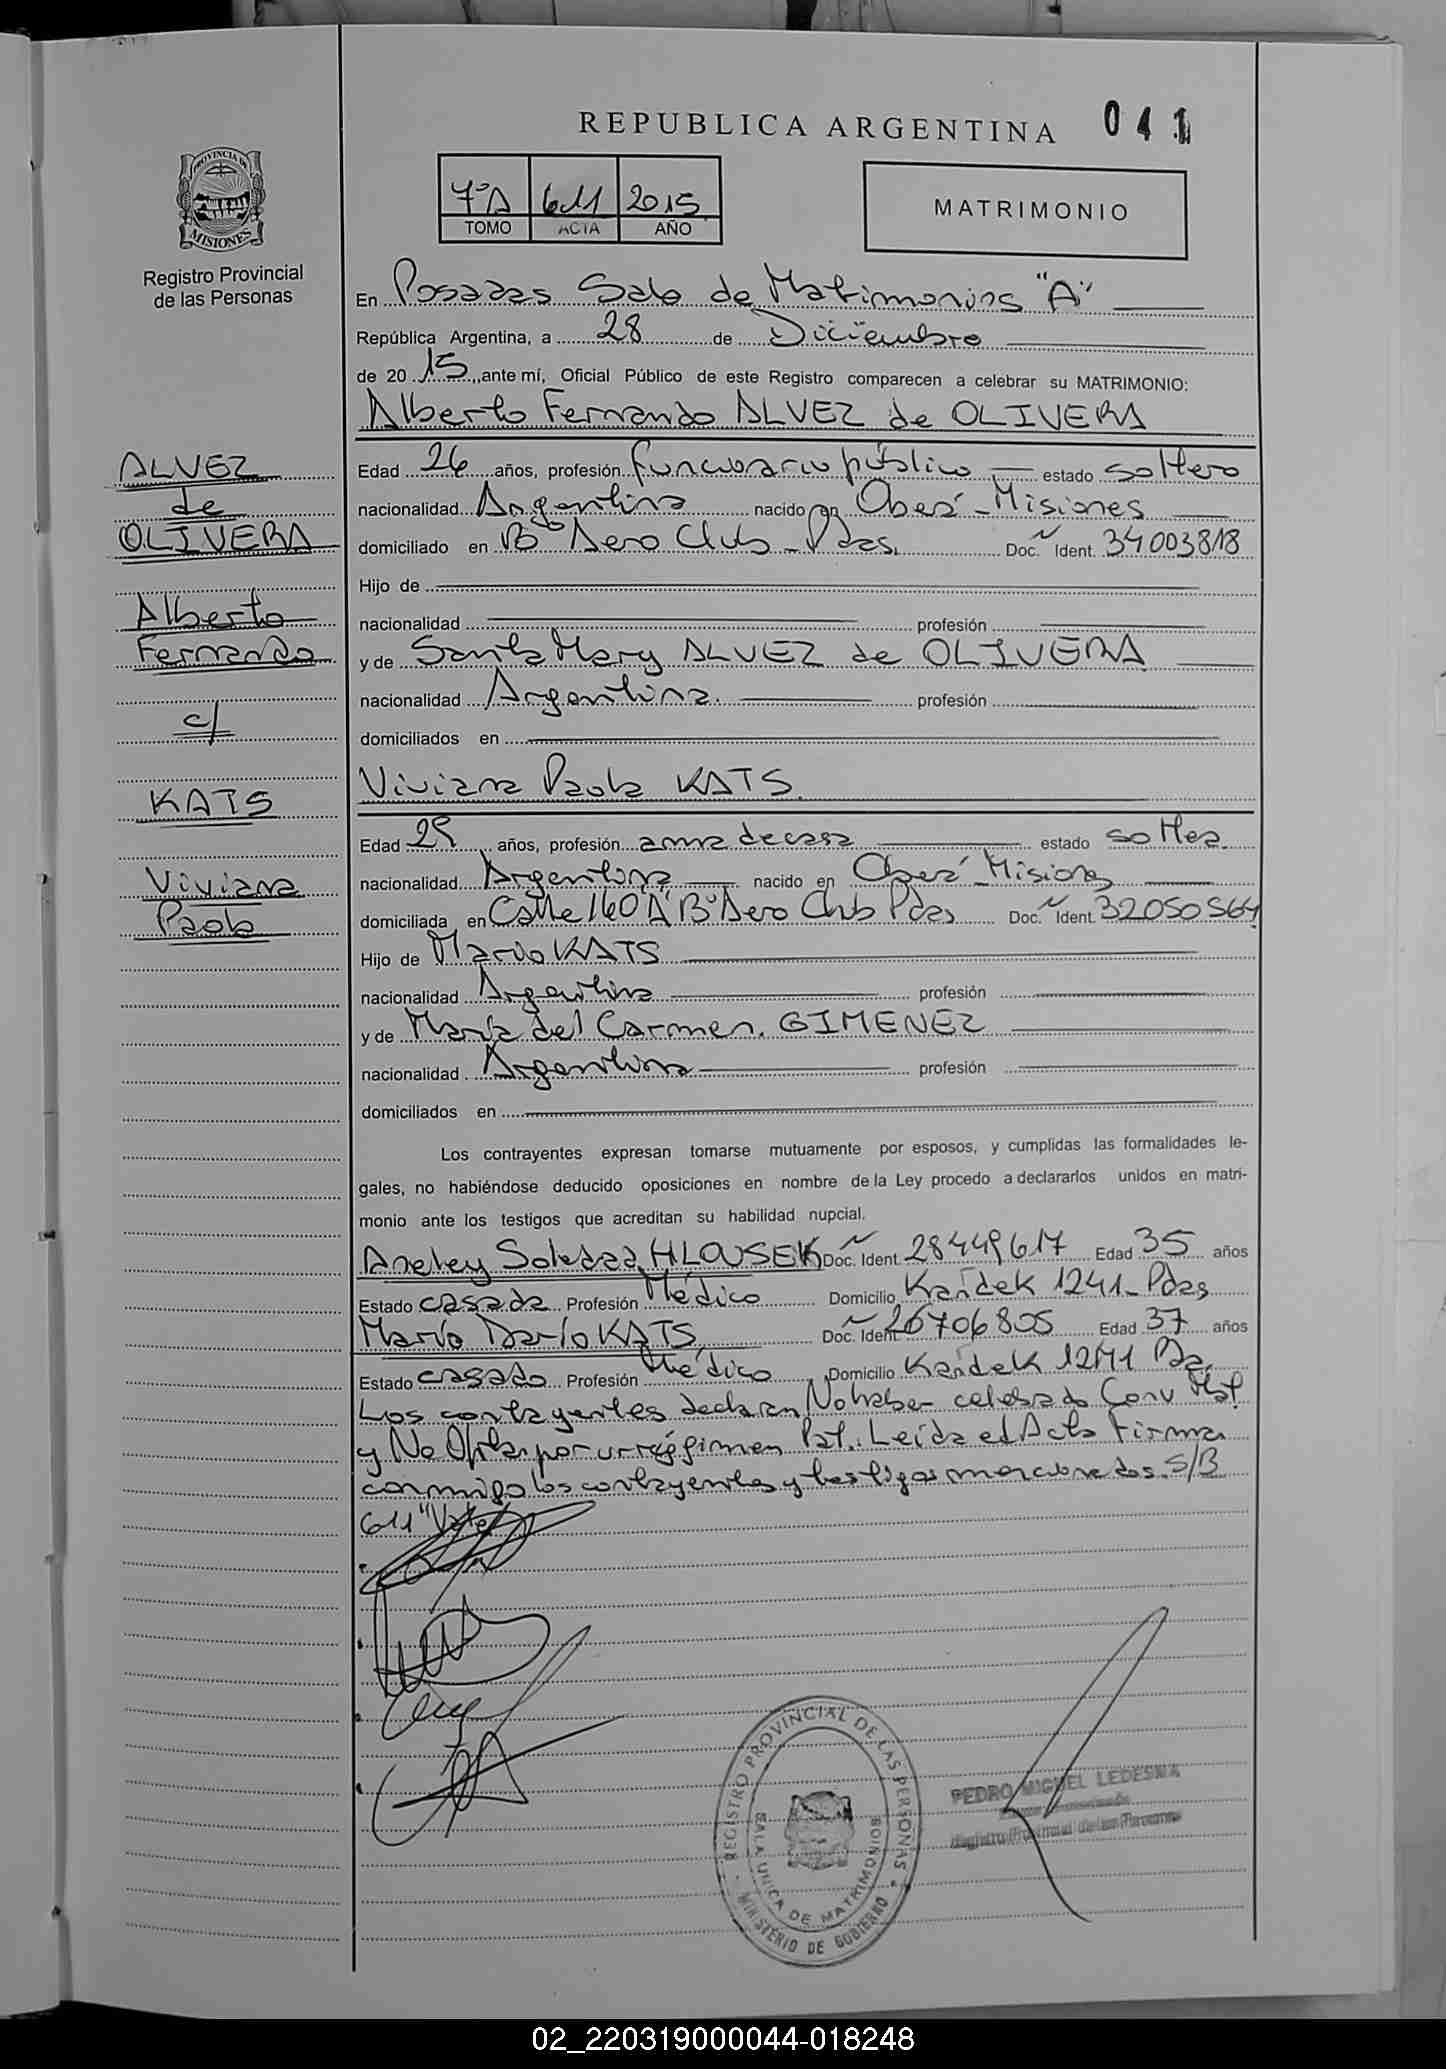 REPUBLICA ARGENTINA 041
PROVINCIA DE MISIONES
Registro Provincial
de las Personas
7ºA 611 2015
TOMO ACTA AÑO
MATRIMONIO
En Posadas Sala de Matrimonios "A"
República Argentina, a 28 de Diciembre
de 2015, ante mí, Oficial Público de este Registro comparecen a celebrar su MATRIMONIO:
Alberto Fernando ALVEZ de OLIVERA
Edad 26 años, profesión funcionario público estado soltero
nacionalidad Argentina nacido en Oberá - Misiones
domiciliado en Bº Aero Club - Pdas. Doc. Ident. 34003818
Hijo de
nacionalidad profesión
y de Santa Mary ALVEZ de OLIVERA
nacionalidad Argentina. profesión
domiciliados en
Viviana Paola KATS.
Edad 29 años, profesión ama de casa estado soltera.
nacionalidad Argentina nacido en Oberá - Misiones
domiciliada en Calle 160 "A" Bº Aero Club Pdas Doc. Ident. 32050564
Hijo de Mario KATS
nacionalidad Argentina profesión
y de María del Carmen. GIMENEZ
nacionalidad Argentina profesión
domiciliados en
Los contrayentes expresan tomarse mutuamente por esposos, y cumplidas las formalidades le-
gales, no habiéndose deducido oposiciones en nombre de la Ley procedo a declararlos unidos en matri-
monio ante los testigos que acreditan su habilidad nupcial.
Aneley Soledad HLOUSEK Doc. Ident. 28449617 Edad 35 años
Estado casada Profesión Médico Domicilio 1241 - Pdas
Mario Darío KATS, Doc. Ident. 26706805 Edad 37 años
Estado casado Profesión Médico Domicilio 1241
Los contrayentes declaran No haber celebrado Conv Mat.
y No Optar por un régimen Pat. Leída el Acta Firman
conmigo los contrayentes y testigos mencionados. S/B
611 "Vale"
ALVEZ
de
OLIVERA
Alberto
Fernando
c/
KATS
Viviana
Paola
REGISTRO PROVINCIAL DE LAS PERSONAS
SALA UNICA DE MATRIMONIOS
MINISTERIO DE GOBIERNO
PEDRO MIGUEL LEDESMA
Registro Provincial de las Personas
02_220319000044-018248